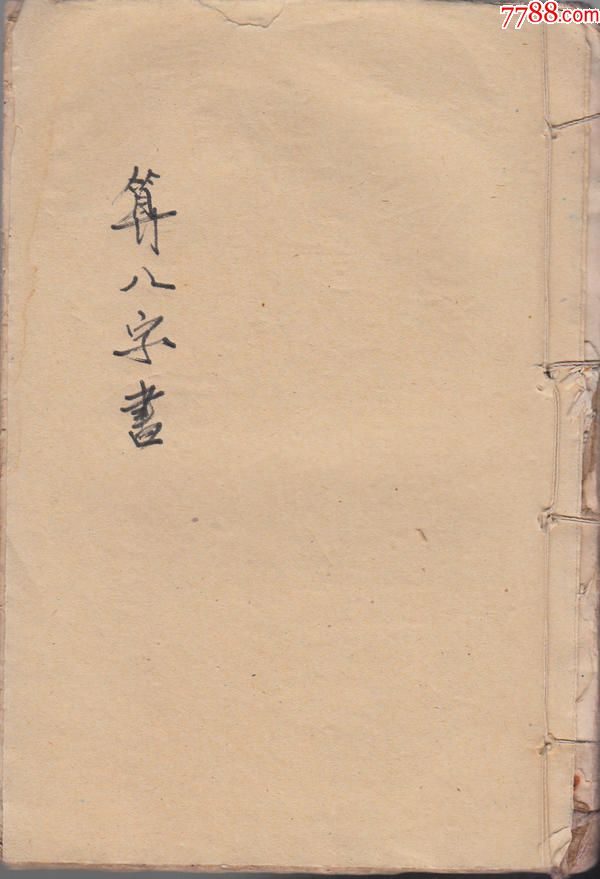 7788.com
算八字書